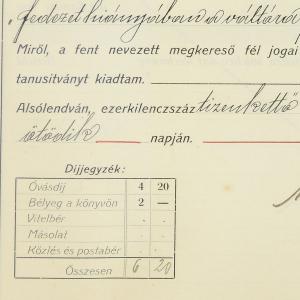 „fedezet hiányában a váltóra
Miről, a fent nevezett megkereső fél jogai
tanusitványt kiadtam.
Alsólendván, ezerkilenczszáz tizenkettő
ötödik napján.
Dijjegyzék:
Óvásdíj 4 20
Bélyeg a könyvön 2 —
Vitelbér . .
Másolat . .
Közlés és postabér . .
Összesen 6 20